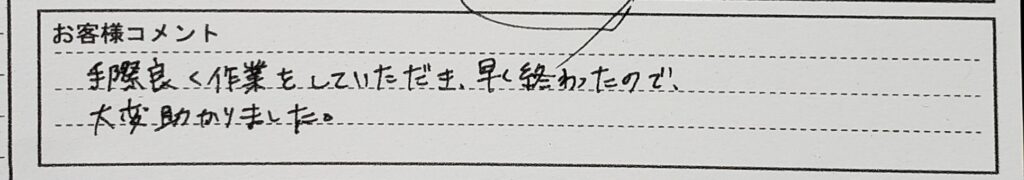 お客様コメント
手際良く作業をしていただき、早く終わったので、
大変助かりました。